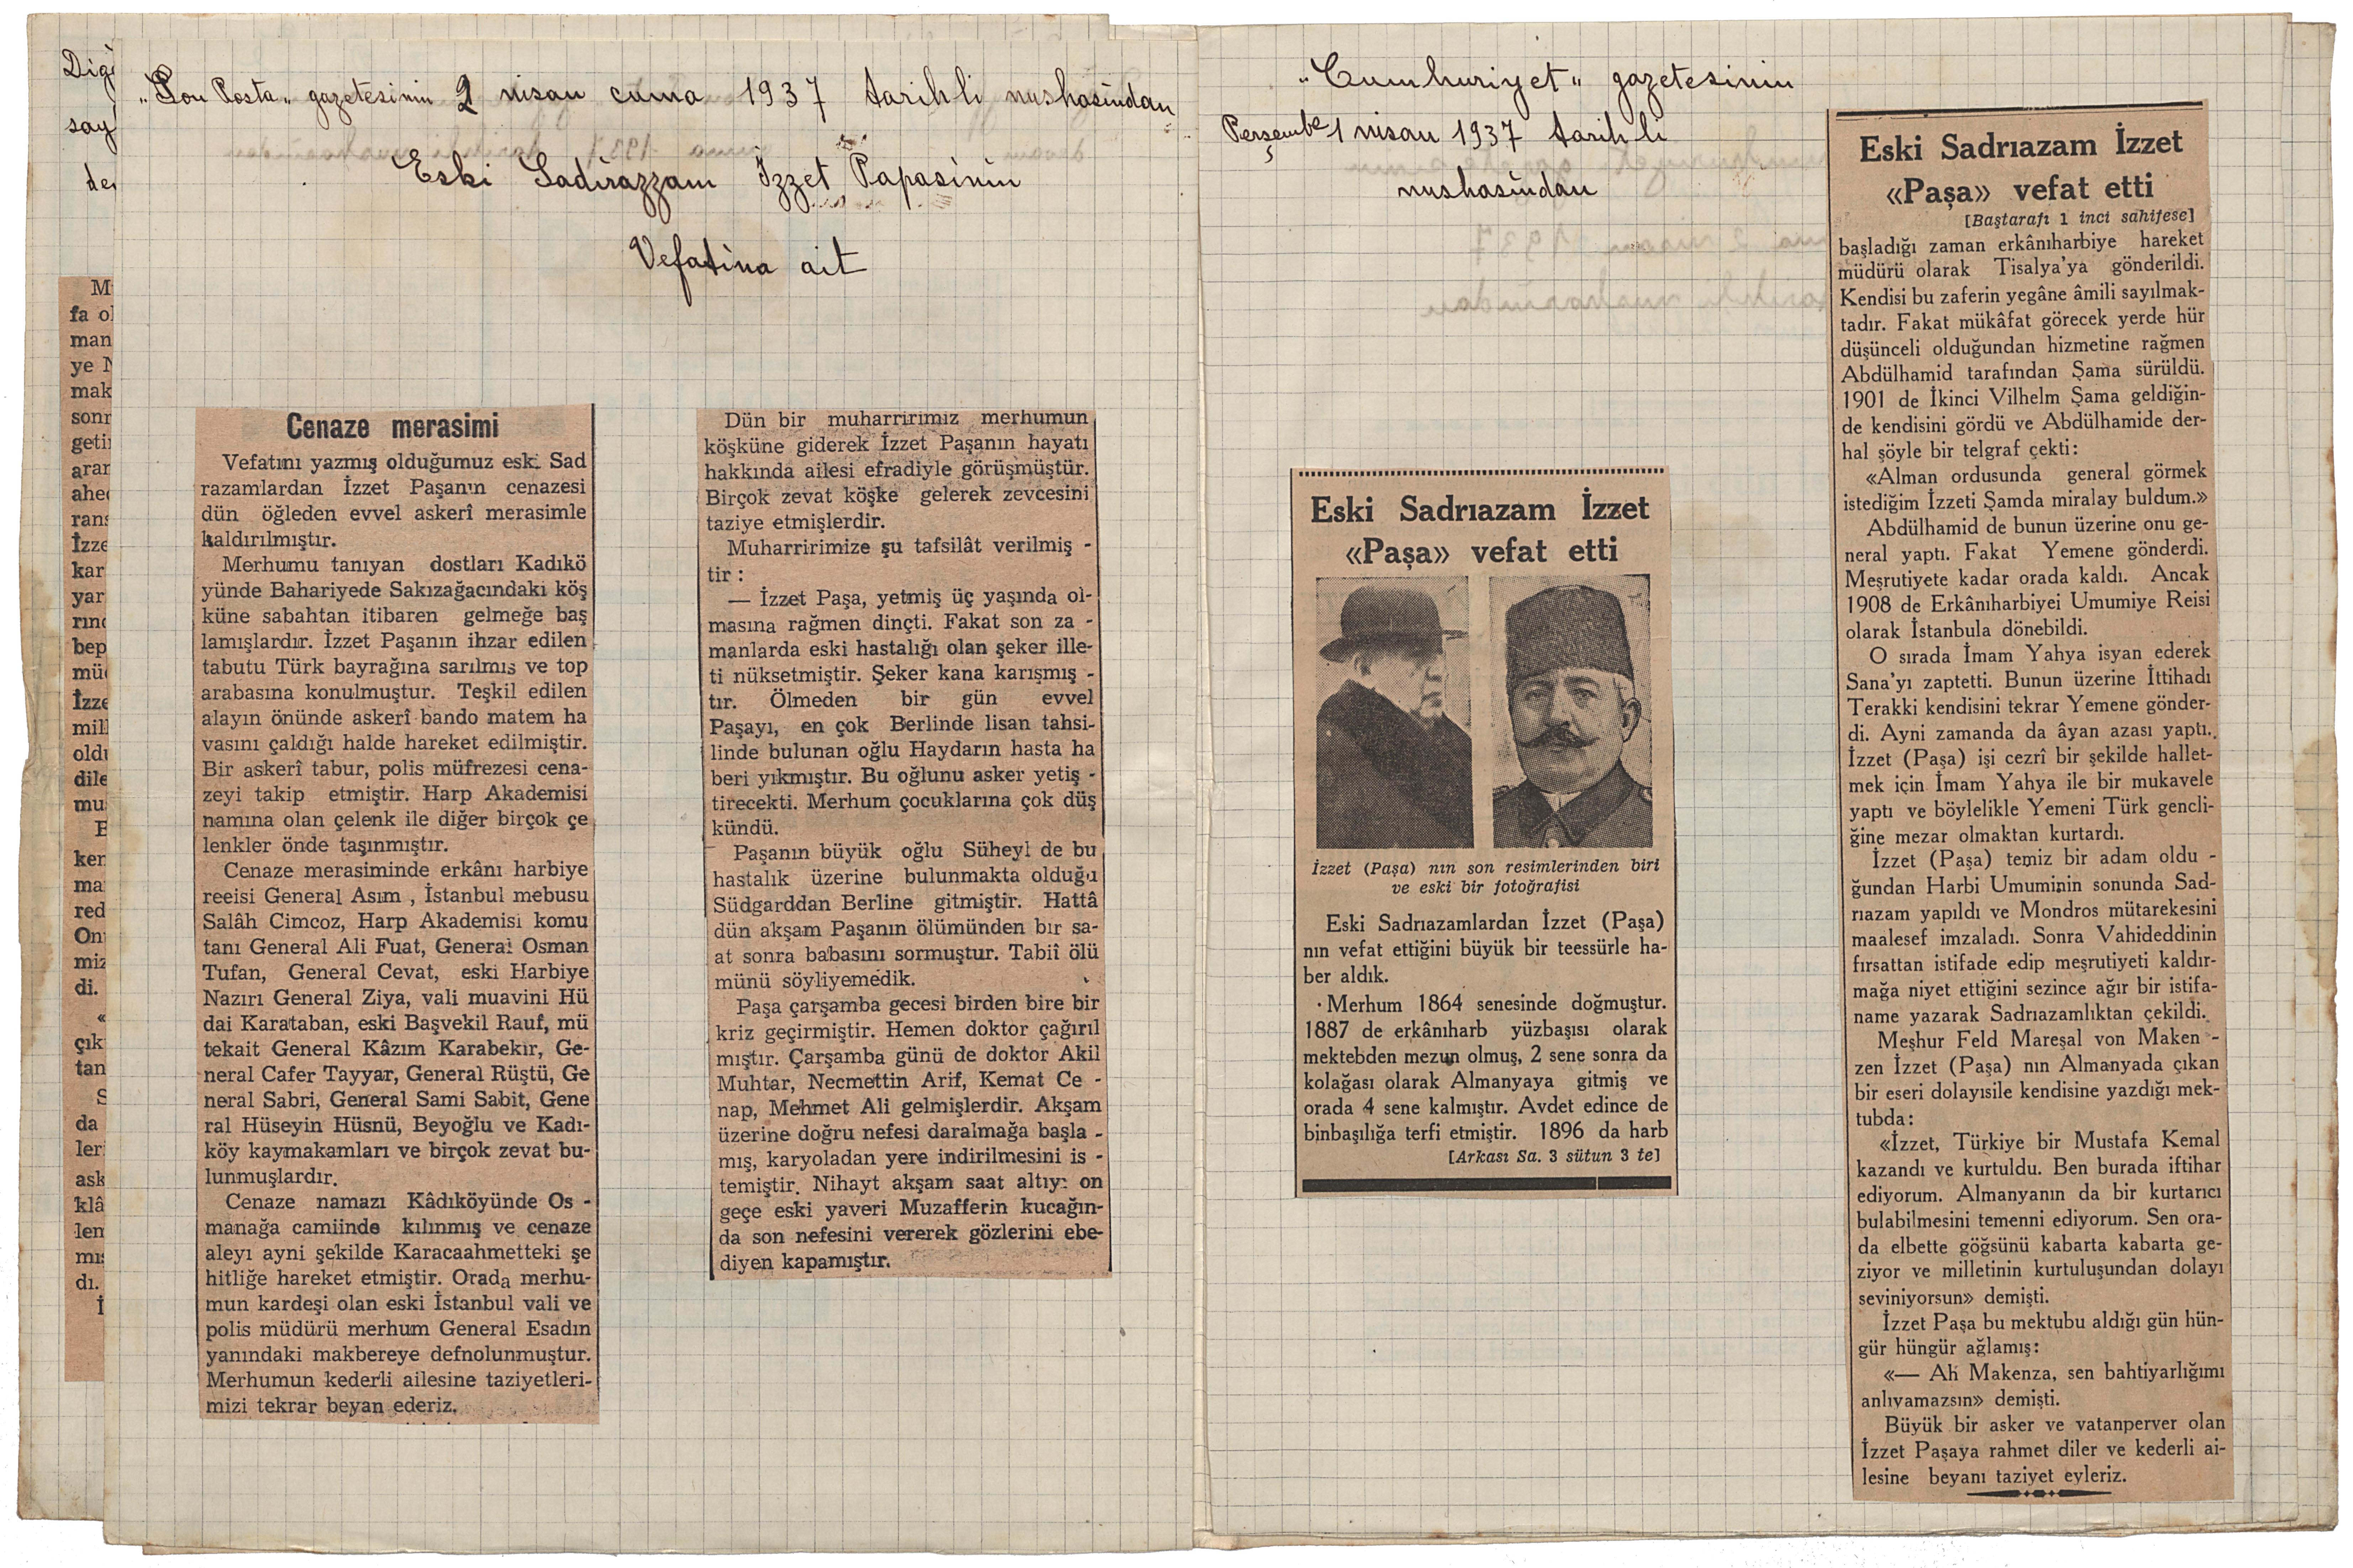 Digi
say
de
M
fa ol
man
ye N
mak
sonr
getir
arar
ahed
rans
İzze
kar
yar
rınd
bep
müd
İzze
mill
oldu
dile
mu
E
ken
ma
red
On
miz
di.
«
çık
tan
S
da
ler
ask
klâ
len
mış
dı.
İ
„Son Posta„ gazetesinin 2 nisan cuma 1937 tarihli nushasından
Eski Sadirazzam İzzet Papasinin
Vefatina ait
Cenaze merasimi
Vefatını yazmış olduğumuz eski Sad
razamlardan İzzet Paşanın cenazesi
dün öğleden evvel askerî merasimle
kaldırılmıştır.
Merhumu tanıyan dostları Kadıkö
yünde Bahariyede Sakızağacındaki köş
küne sabahtan itibaren gelmeğe baş
lamışlardır. İzzet Paşanın ihzar edilen
tabutu Türk bayrağına sarılmış ve top
arabasına konulmuştur. Teşkil edilen
alayın önünde askerî bando matem ha
vasını çaldığı halde hareket edilmiştir.
Bir askerî tabur, polis müfrezesi cena-
zeyi takip etmiştir. Harp Akademisi
namına olan çelenk ile diğer birçok çe
lenkler önde taşınmıştır.
Cenaze merasiminde erkânı harbiye
reeisi General Asım , İstanbul mebusu
Salâh Cimcoz, Harp Akademisi komu
tanı General Ali Fuat, General Osman
Tufan, General Cevat, eski Harbiye
Nazırı General Ziya, vali muavini Hü
dai Karataban, eski Başvekil Rauf, mü
tekait General Kâzım Karabekir, Ge-
neral Cafer Tayyar, General Rüştü, Ge
neral Sabri, General Sami Sabit, Gene
ral Hüseyin Hüsnü, Beyoğlu ve Kadı-
köy kaymakamları ve birçok zevat bu-
lunmuşlardır.
Cenaze namazı Kâdıköyünde Os -
manağa camiinde kılınmış ve cenaze
aleyı ayni şekilde Karacaahmetteki şe
hitliğe hareket etmiştir. Orada merhu-
mun kardeşi olan eski İstanbul vali ve
polis müdürü merhum General Esadın
yanındaki makbereye defnolunmuştur.
Merhumun kederli ailesine taziyetleri-
mizi tekrar beyan ederiz.
Dün bir muharririmiz merhumun
köşküne giderek İzzet Paşanın hayatı
hakkında ailesi efradiyle görüşmüştür.
Birçok zevat köşke gelerek zevcesini
taziye etmişlerdir.
Muharririmize şu tafsilât verilmiş -
tir :
— İzzet Paşa, yetmiş üç yaşında ol-
masına rağmen dinçti. Fakat son za -
manlarda eski hastalığı olan şeker ille-
ti nüksetmiştir. Şeker kana karışmış -
tır. Ölmeden bir gün evvel
Paşayı, en çok Berlinde lisan tahsi-
linde bulunan oğlu Haydarın hasta ha
beri yıkmıştır. Bu oğlunu asker yetiş -
tirecekti. Merhum çocuklarına çok düş
kündü.
Paşanın büyük oğlu Süheyl de bu
hastalık üzerine bulunmakta olduğu
Südgarddan Berline gitmiştir. Hattâ
dün akşam Paşanın ölümünden bir sa-
at sonra babasını sormuştur. Tabiî ölü
münü söyliyemedik.
Paşa çarşamba gecesi birden bire bir
kriz geçirmiştir. Hemen doktor çağırıl
mıştır. Çarşamba günü de doktor Akil
Muhtar, Necmettin Arif, Kemat Ce -
nap, Mehmet Ali gelmişlerdir. Akşam
üzerine doğru nefesi daralmağa başla -
mış, karyoladan yere indirilmesini is -
temiştir. Nihayt akşam saat altıyı on
geçe eski yaveri Muzafferin kucağın-
da son nefesini vererek gözlerini ebe-
diyen kapamıştır.
„Cumhuriyet„ gazetesinin
Perşembe 1 nisan 1937 tarihli
nushasından
Eski Sadrıazam İzzet
«Paşa» vefat etti
İzzet (Paşa) nın son resimlerinden biri
ve eski bir fotoğrafisi
Eski Sadrıazamlardan İzzet (Paşa)
nın vefat ettiğini büyük bir teessürle ha-
ber aldık.
Merhum 1864 senesinde doğmuştur.
1887 de erkânıharb yüzbaşısı olarak
mektebden mezun olmuş, 2 sene sonra da
kolağası olarak Almanyaya gitmiş ve
orada 4 sene kalmıştır. Avdet edince de
binbaşılığa terfi etmiştir. 1896 da harb
[Arkası Sa. 3 sütun 3 te]
Eski Sadrıazam İzzet
«Paşa» vefat etti
[Baştarafı 1 inci sahifese]
başladığı zaman erkânıharbiye hareket
müdürü olarak Tisalya'ya gönderildi.
Kendisi bu zaferin yegâne âmili sayılmak-
tadır. Fakat mükâfat görecek yerde hür
düşünceli olduğundan hizmetine rağmen
Abdülhamid tarafından Şama sürüldü.
1901 de İkinci Vilhelm Şama geldiğin-
de kendisini gördü ve Abdülhamide der-
hal şöyle bir telgraf çekti:
«Alman ordusunda general görmek
istediğim İzzeti Şamda miralay buldum.»
Abdülhamid de bunun üzerine onu ge-
neral yaptı. Fakat Yemene gönderdi.
Meşrutiyete kadar orada kaldı. Ancak
1908 de Erkânıharbiyei Umumiye Reisi
olarak İstanbula dönebildi.
O sırada İmam Yahya isyan ederek
Sana'yı zaptetti. Bunun üzerine İttihadı
Terakki kendisini tekrar Yemene gönder-
di. Ayni zamanda da âyan azası yaptı.
İzzet (Paşa) işi cezrî bir şekilde hallet-
mek için İmam Yahya ile bir mukavele
yaptı ve böylelikle Yemeni Türk gencli-
ğine mezar olmaktan kurtardı.
İzzet (Paşa) temiz bir adam oldu -
ğundan Harbi Umuminin sonunda Sad-
rıazam yapıldı ve Mondros mütarekesini
maalesef imzaladı. Sonra Vahideddinin
fırsattan istifade edip meşrutiyeti kaldır-
mağa niyet ettiğini sezince ağır bir istifa-
name yazarak Sadrıazamlıktan çekildi.
Meşhur Feld Mareşal von Maken -
zen İzzet (Paşa) nın Almanyada çıkan
bir eseri dolayısile kendisine yazdığı mek-
tubda:
«İzzet, Türkiye bir Mustafa Kemal
kazandı ve kurtuldu. Ben burada iftihar
ediyorum. Almanyanın da bir kurtarıcı
bulabilmesini temenni ediyorum. Sen ora-
da elbette göğsünü kabarta kabarta ge-
ziyor ve milletinin kurtuluşundan dolayı
seviniyorsun» demişti.
İzzet Paşa bu mektubu aldığı gün hün-
gür hüngür ağlamış:
«— Ah Makenza, sen bahtiyarlığımı
anlıyamazsın» demişti.
Büyük bir asker ve vatanperver olan
İzzet Paşaya rahmet diler ve kederli ai-
lesine beyanı taziyet eyleriz.